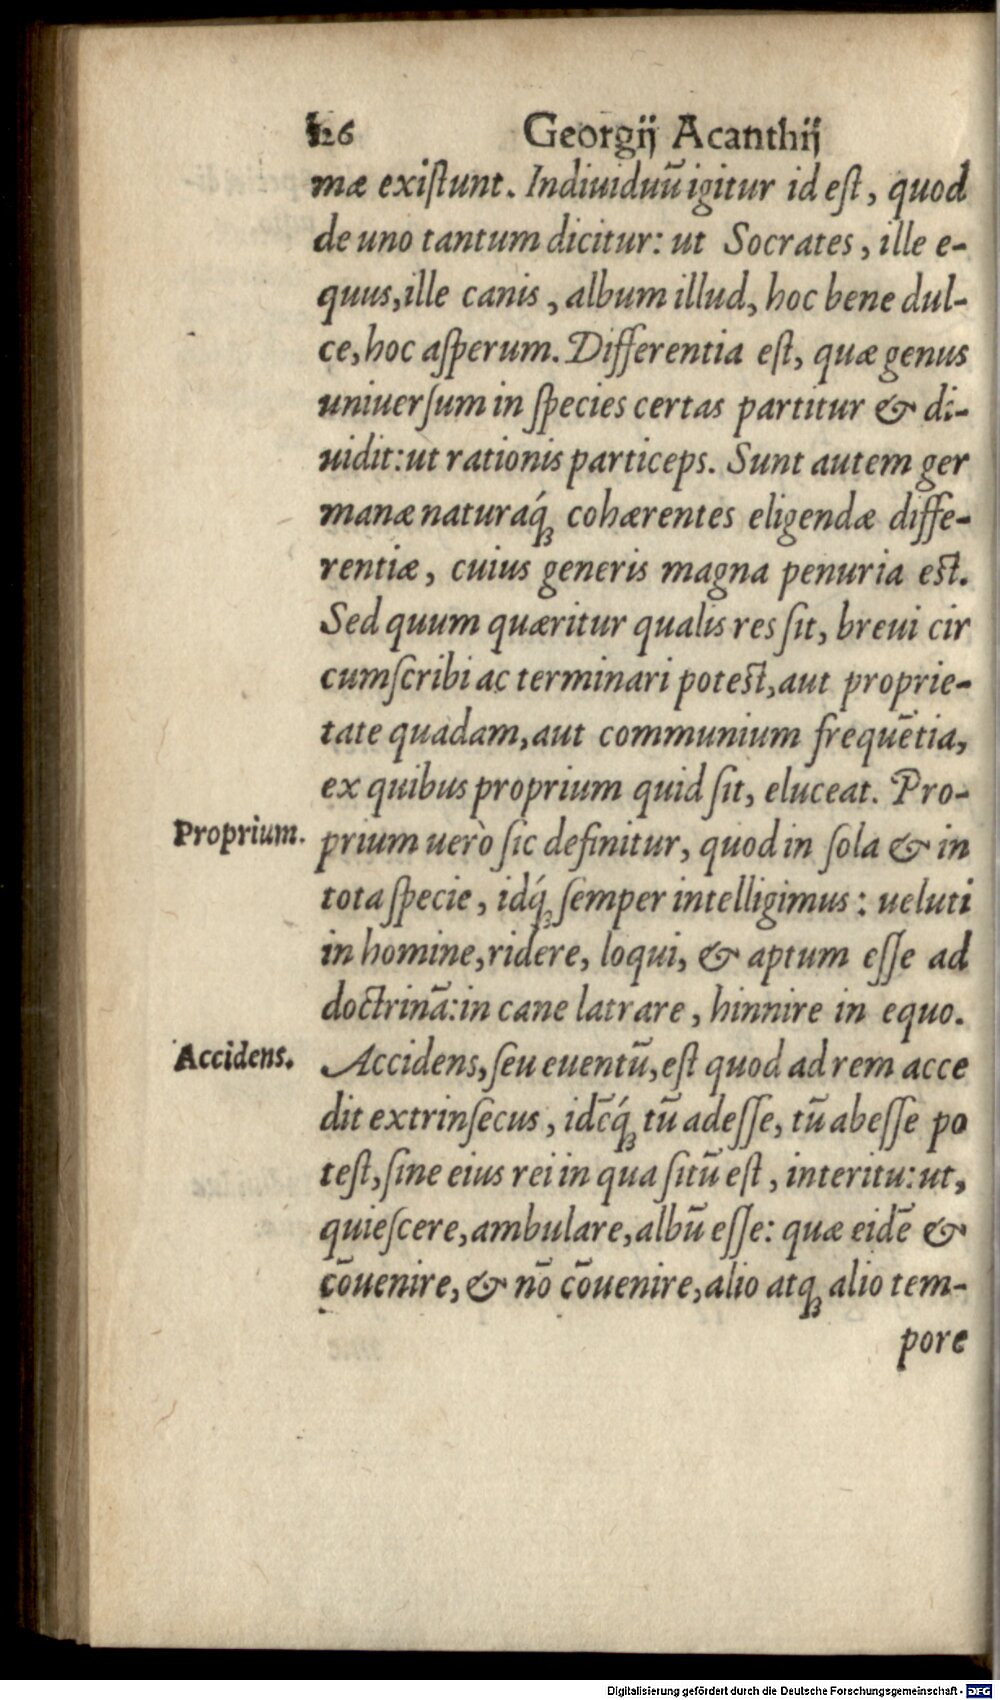 126 Georgij Acanthij
mæ exiſtunt. Indiuiduũ igitur id eſt, quod
de uno tantum dicitur: ut Socrates, ille e-
quus, ille canis, album illud, hoc bene dul-
ce, hoc aſperum. Differentia eſt, quæ genus
uniuerſum in ſpecies certas partitur & di-
uidit: ut rationis particeps. Sunt autem ger
manæ naturaq́ꝫ cohærentes eligendæ diffe-
rentiæ, cuius generis magna penuria est.
Sed quum quæritur qualis res ſit, breui cir
cumſcribi ac terminari potest, aut proprie-
tate quadam, aut communium frequẽtia,
ex quibus proprium quid ſit, eluceat. Pro-
Proprium. prium uerò ſic definitur, quod in ſola & in
tota ſpecie, idq́ꝫ ſemper intelligimus: ueluti
in homine, ridere, loqui, & aptum eſſe ad
doctrinã: in cane latrare, hinnire in equo.
Accidens. Accidens, ſeu euentũ, eſt quod ad rem acce
dit extrinſecus, idẽq́ꝫ tũ adeſſe, tũ abeſſe po
teſt, ſine eius rei in qua ſitũ eſt, interitu: ut,
quieſcere, ambulare, albũ eſſe: quæ eidẽ &
cõuenire, & nõ cõuenire, alio atqꝫ alio tem-
pore
Digitalisierung gefördert durch die Deutsche Forschungsgemeinschaft - DFG